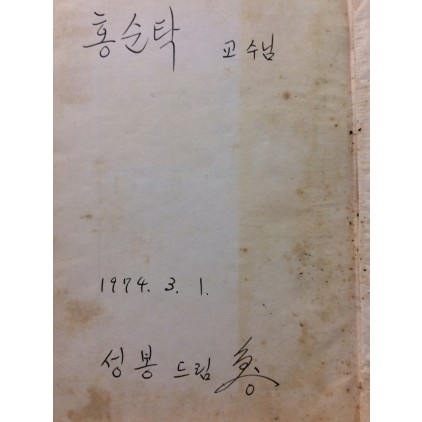 홍순탁 교수님
1974. 3. 1.
성봉 드림